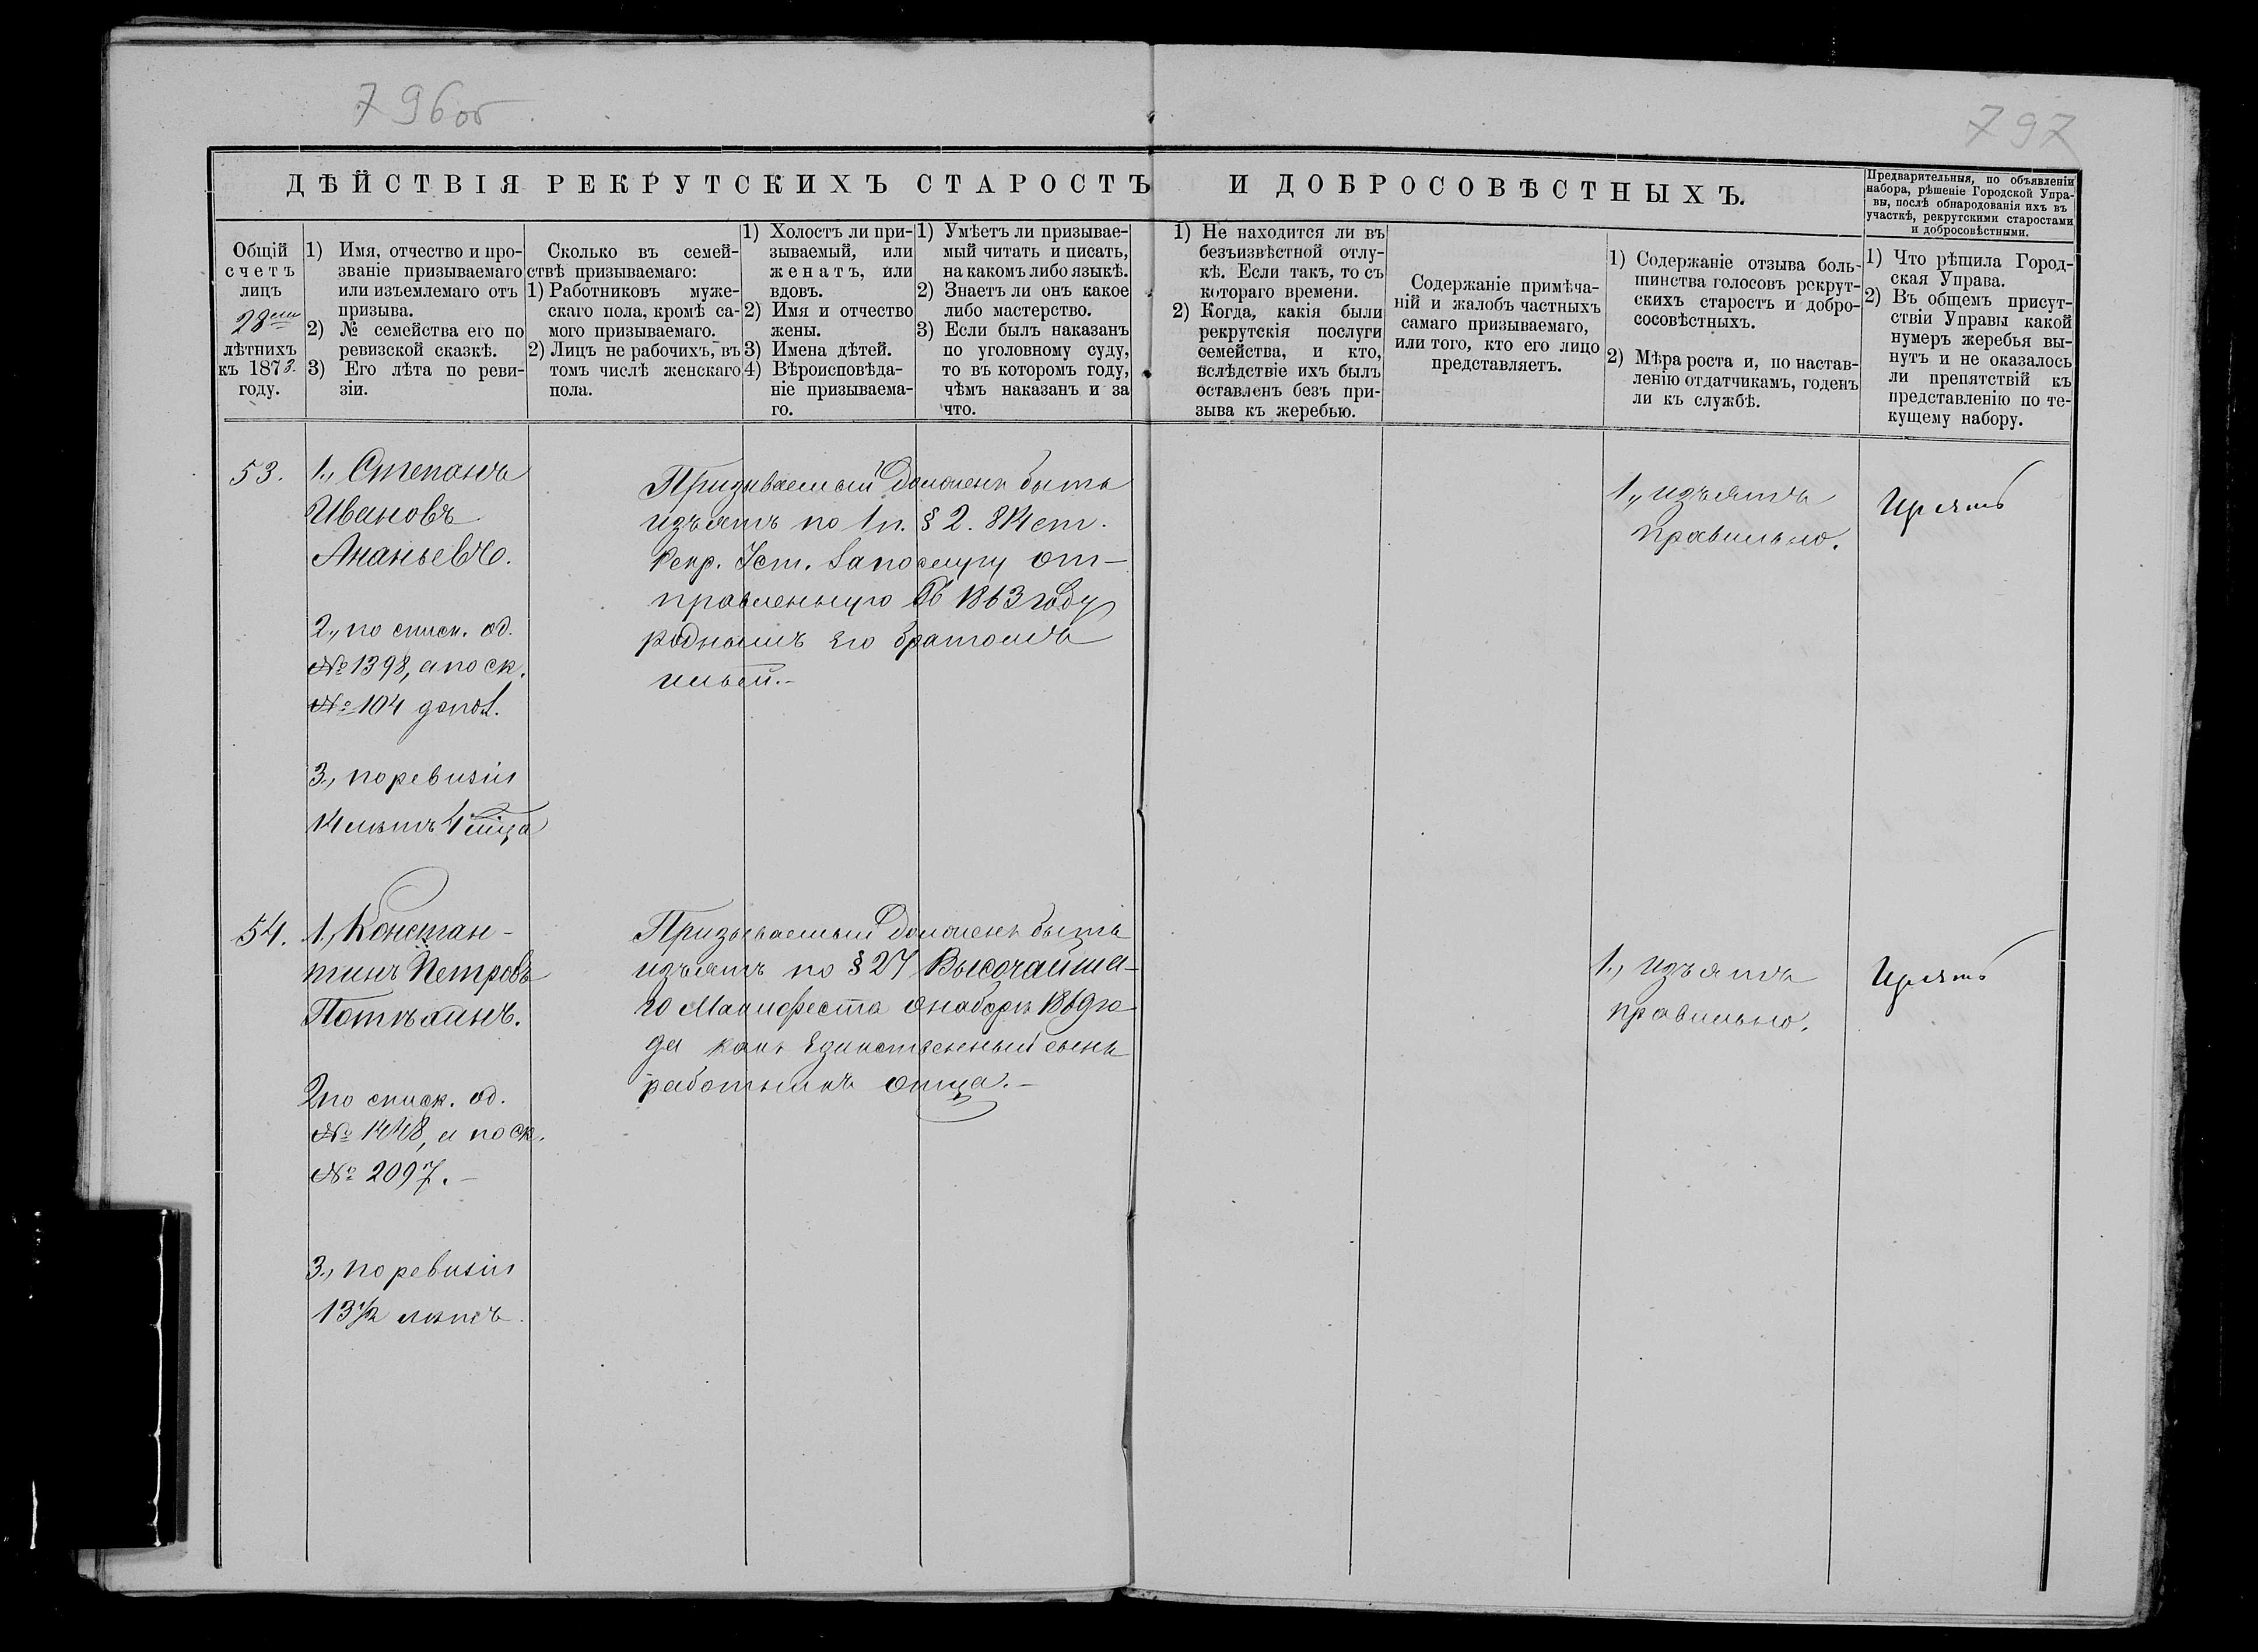 796об
797
ДѢЙСТВІЯ РЕКРУТСКИХЪ СТАРОСТЪ И ДОБРОСОВѢСТНЫХЪ.
Предварительныя, по объявленіи
набора, рѣшеніе Городской Упра-
вы, послѣ обнародованія ихъ въ
участкѣ, рекрутскими старостами
и добросовѣстными.
Общій
счетъ
лицъ
28ми
лѣтнихъ
къ 1873.
году.
1) Имя, отчество и про-
званіе призываемаго
или изъемлемаго отъ
призыва.
2) № семейства его по
ревизской сказкѣ.
3) Его лѣта по реви-
зіи.
Сколько въ семей-
ствѣ призываемаго:
1) Работниковъ муже-
скаго пола, кромѣ са-
мого призываемаго.
2) Лицъ не рабочихъ, въ
томъ числѣ женскаго
пола.
1) Холостъ ли при-
зываемый, или
женатъ, или
вдовъ.
2) Имя и отчество
жены.
3) Имена дѣтей.
4) Вѣроисповѣда-
ніе призываема-
го.
1) Умѣетъ ли призывае-
мый читать и писать,
на какомъ либо языкѣ.
2) Знаетъ ли онъ какое
либо мастерство.
3) Если былъ наказанъ
по уголовному суду,
то въ которомъ году,
чѣмъ наказанъ и за
что.
1) Не находится ли въ
безъизвѣстной отлу-
кѣ. Если такъ, то съ
котораго времени.
2) Когда, какія были
рекрутскія послуги
семейства, и кто,
вслѣдствіе ихъ былъ
оставленъ безъ при-
зыва къ жеребью.
Содержаніе примѣча-
ній и жалобъ частныхъ
самаго призываемаго,
или того, кто его лицо
представляетъ.
1) Содержаніе отзыва боль-
шинства голосовъ рекрут-
скихъ старостъ и добро-
сосовѣстныхъ.
2) Мѣра роста и, по настав-
ленію отдатчикамъ, годенъ
ли къ службѣ.
1) Что рѣшила Город-
ская Управа.
2) Въ общемъ присут-
ствіи Управы какой
нумеръ жеребья вы-
нутъ и не оказалось
ли препятствій къ
представленію по те-
кущему набору.
53.
1., Степанъ
Ивановъ
Ананьевъ.
2., по списк. од.
№ 1398, а по ск.
№ 104 допол.
3., по ревизіи
14 лѣтъ 4 м҃ца
Призываемый долженъ быть
изъятъ по 1 п. § 2. 814 ст.
Рекр. Уст. за послугу от-
правленную въ 1863 году
роднымъ его братомъ
Ильей.-
1., изъятъ
правильно.
Изъять
54.
1., Констан-
тинъ Петровъ
Потѣхинъ.
2 по списк. од.
№ 1448, а по ск.
№ 2097.-
3., по ревизіи
13½ лѣтъ.
Призываемый долженъ быть
изъятъ по § 27 Высочайша-
го Манифеста о наборѣ 1869 го-
да какъ единственный сынъ
работникъ отца.-
1., изъятъ
правильно.
Изъять